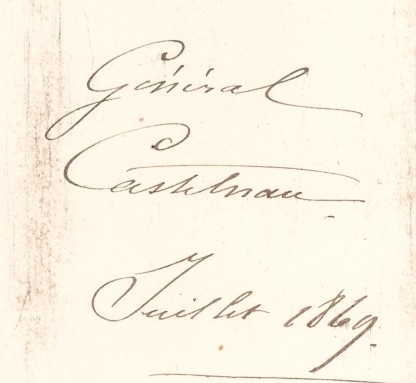 Général
Castelnau
Juillet 1869